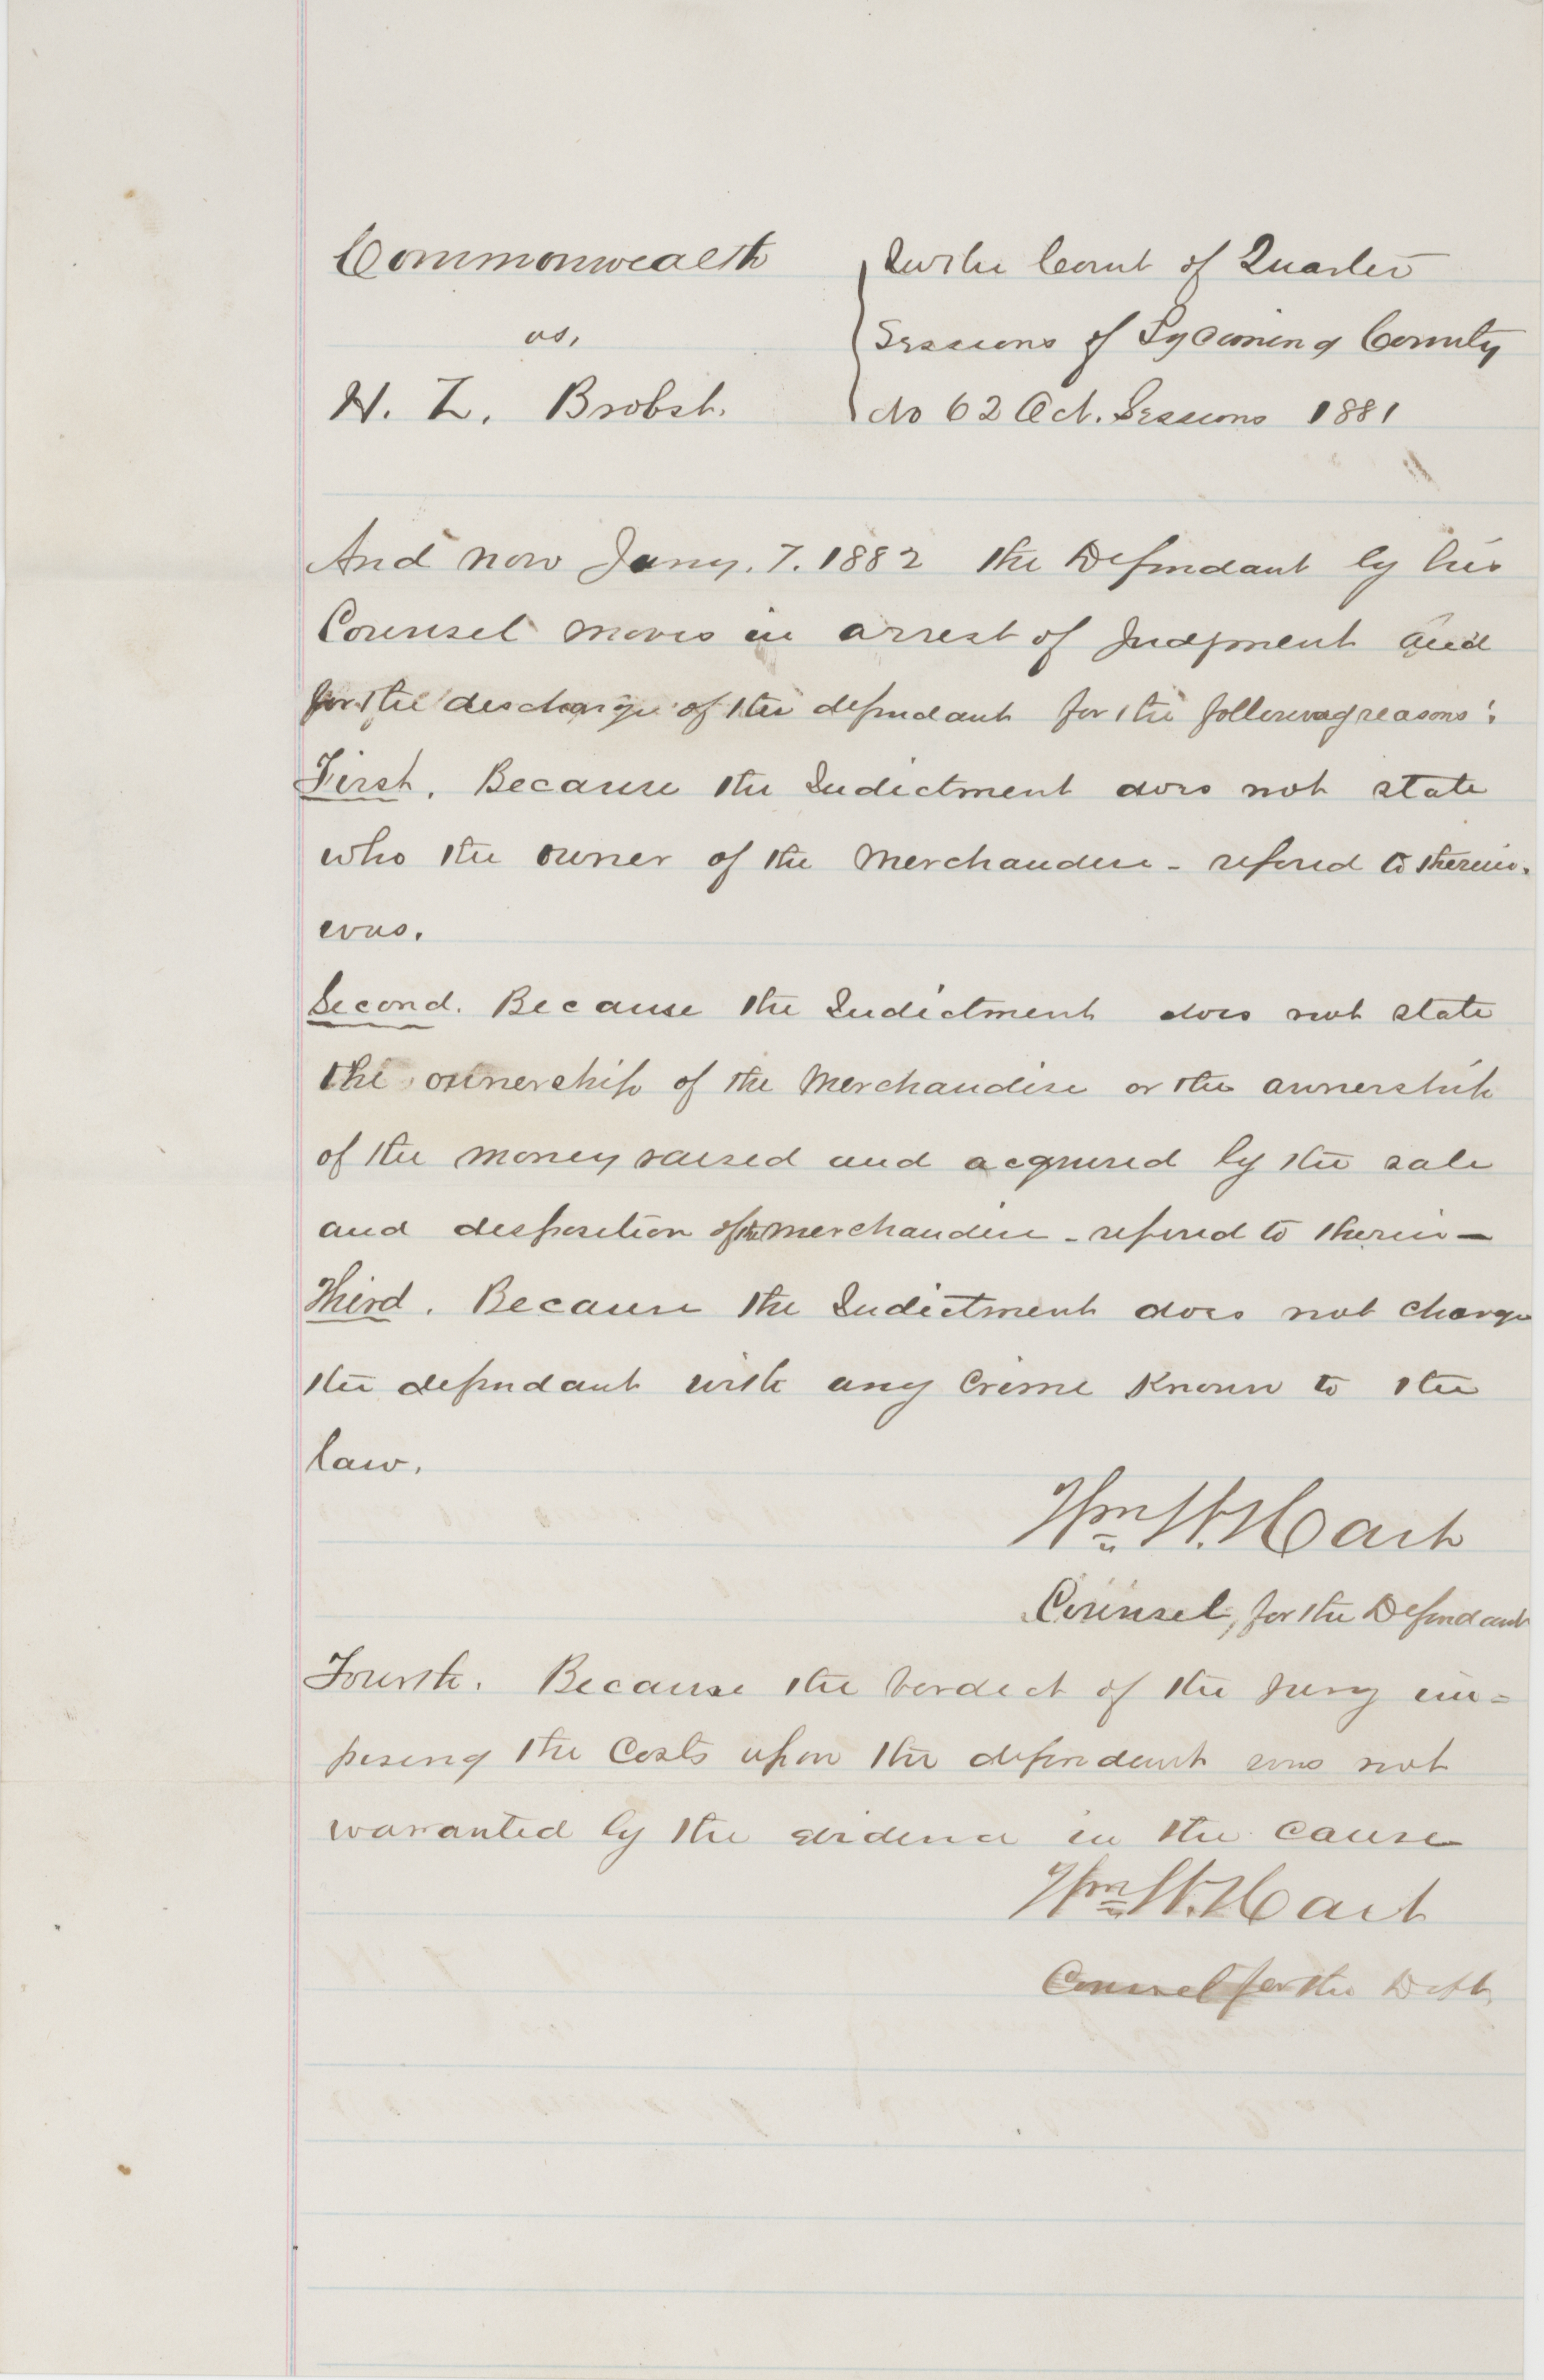 Commonwealth
vs.
H. L. Brobst.
In the Court of Quarter
Sessions of Lycoming County
No 62 Oct. Sessions 1881
And now Jany. 7. 1882 the Defendant by his
Counsel moves in arrest of Judgment and
for the discharge of the defendant for the following reasons:
First. Because the Indictment does not state
who the owner of the Merchandise - refered to therein.
was.
Second. Because the Indictment does not state
the ownership of the Merchandise or the ownership
of the money raised and acquired by the sale
and disposition of the merchandise - refered to therein -
Third. Because the Indictment does not charge
the defendant with any Crime Known to the
law.
Wm H. Hart
Counsel, for the Defendant
Fourth. Because the verdict of the Jury im=
posing the Costs upon the defendant was not
warranted by the evidence in the cause
Wm H. Hart
Counsel for the Deft